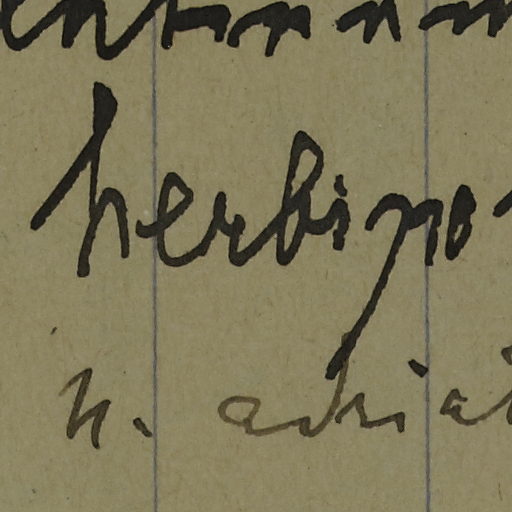 herbipo
n. adriat